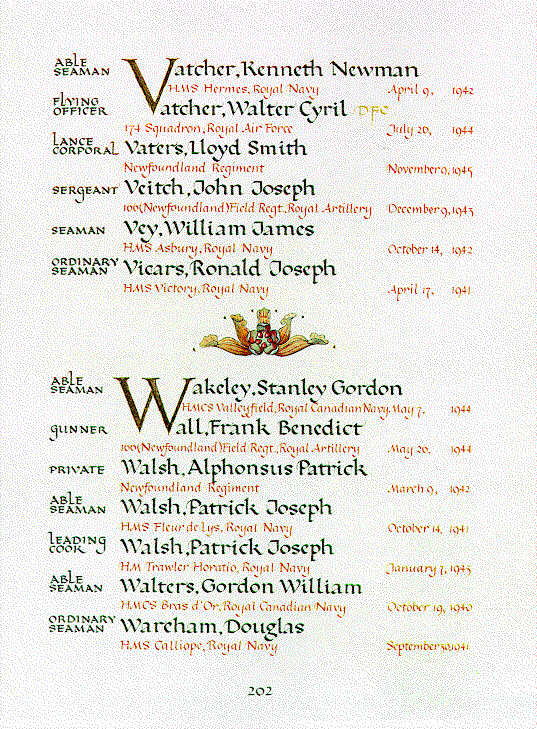 ABLE SEAMAN Vatcher, Kenneth Newman
HMS Hermes, Royal Navy April 9, 1942
FLYING OFFICER Vatcher, Walter Cyril DFC
174 Squadron, Royal Air Force July 20, 1944
LANCE CORPORAL Vaters, Lloyd Smith
Newfoundland Regiment November 9, 1945
SERGEANT Veitch, John Joseph
166(Newfoundland)Field Regt., Royal Artillery December 9, 1943
SEAMAN Vey, William James
HMS Asbury, Royal Navy October 14, 1942
ORDINARY SEAMAN Vicars, Ronald Joseph
HMS Victory, Royal Navy April 17, 1941
ABLE SEAMAN Wakeley, Stanley Gordon
HMCS Valleyfield, Royal Canadian Navy, May 7, 1944
GUNNER Wall, Frank Benedict
166(Newfoundland)Field Regt., Royal Artillery May 20, 1944
PRIVATE Walsh, Alphonsus Patrick
Newfoundland Regiment March 9, 1942
ABLE SEAMAN Walsh, Patrick Joseph
HMS Fleur de Lys, Royal Navy October 14, 1941
LEADING COOK Walsh, Patrick Joseph
HM Trawler Horatio, Royal Navy January 7, 1943
ABLE SEAMAN Walters, Gordon William
HMCS Bras d'Or, Royal Canadian Navy October 19, 1940
ORDINARY SEAMAN Wareham, Douglas
HMS Calliope, Royal Navy September 30, 1941
202